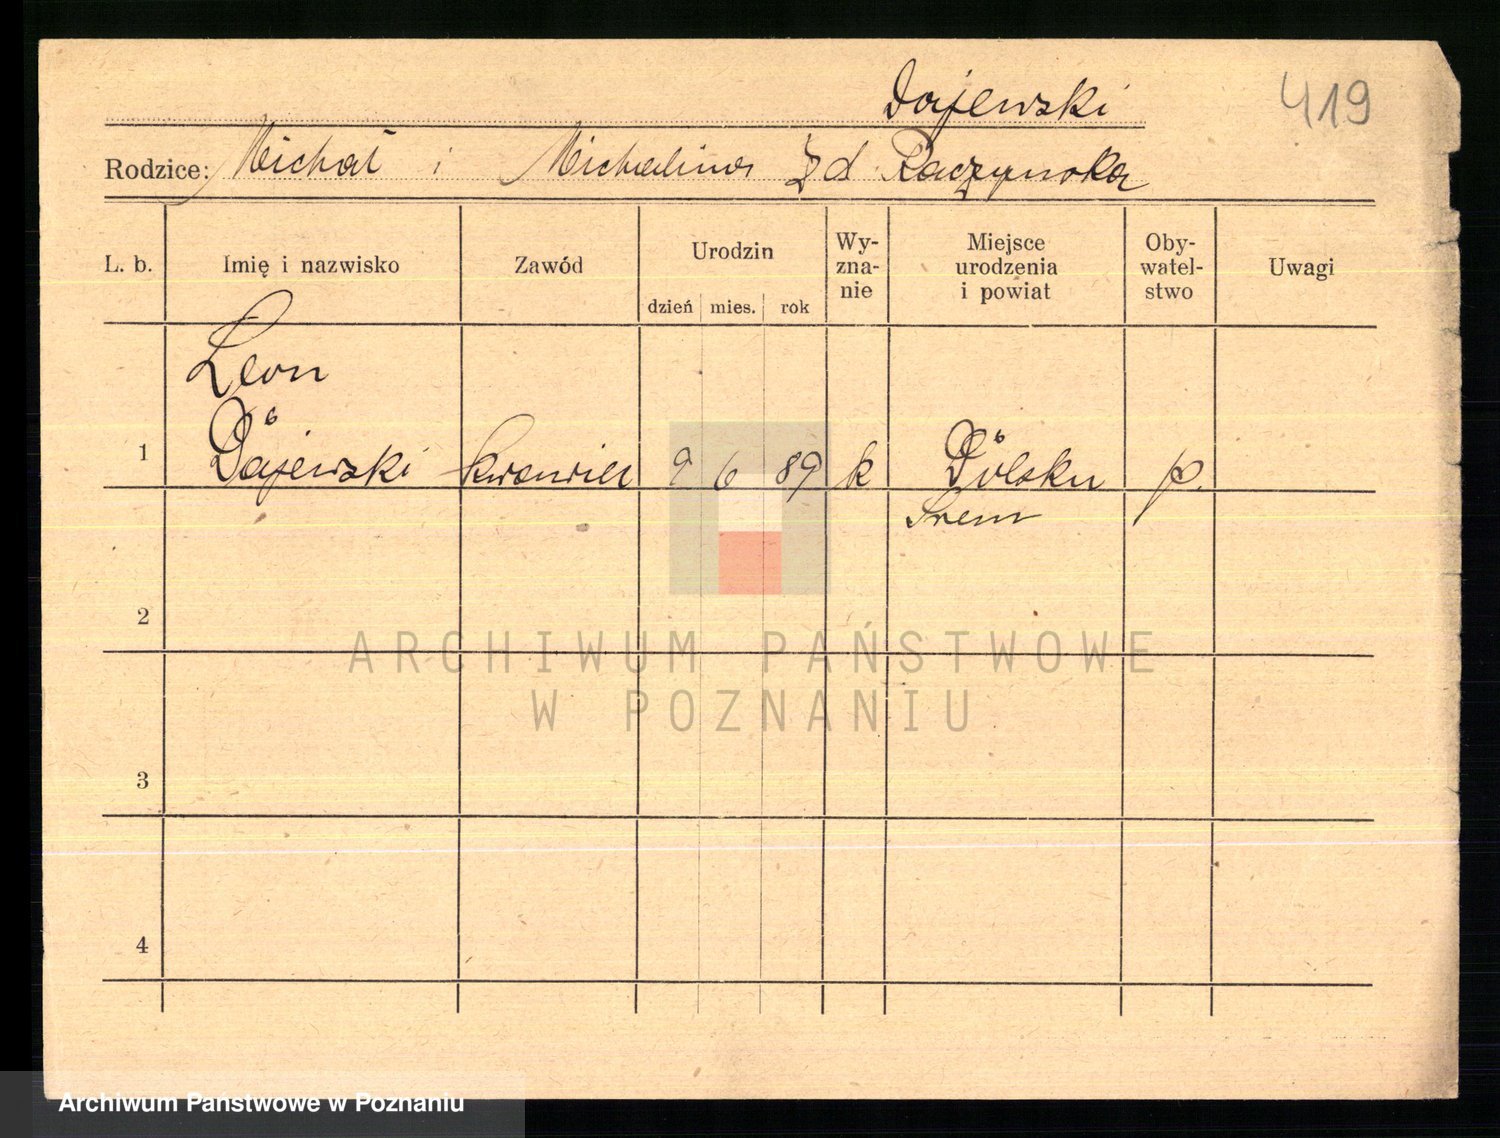 Dajewski
419
Rodzice: Michał i Michalina z d. Raczyńska
L. b. Imię i nazwisko Zawód Urodzin dzień mies. rok Wy-zna-nie Miejsce urodzenia i powiat Oby-watel-stwo Uwagi
Leon
1 Dajewski krawiec 9 6 89 k Dólsku p.
Śrem
2
ARCHIWUM PAŃSTWOWE
W POZNANIU
3
4
Archiwum Państwowe w Poznaniu